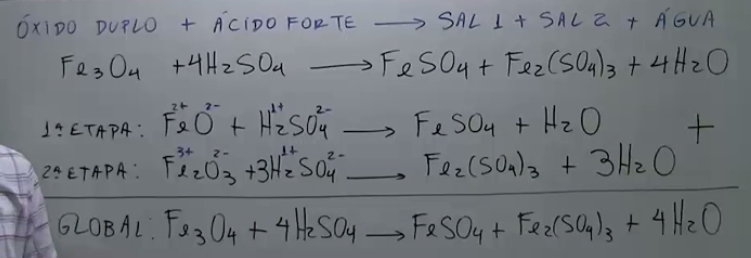 ÓXIDO DUPLO + ÁCIDO FORTE → SAL 1 + SAL 2 + ÁGUA
Fe₃O₄ + 4H₂SO₄ → FeSO₄ + Fe₂(SO₄)₃ + 4H₂O
1ª ETAPA: Fe²⁺O²⁻ + H₂¹⁺SO₄²⁻ → FeSO₄ + H₂O +
2ª ETAPA: Fe₂³⁺O₃²⁻ + 3H₂¹⁺SO₄²⁻ → Fe₂(SO₄)₃ + 3H₂O
GLOBAL: Fe₃O₄ + 4H₂SO₄ → FeSO₄ + Fe₂(SO₄)₃ + 4H₂O